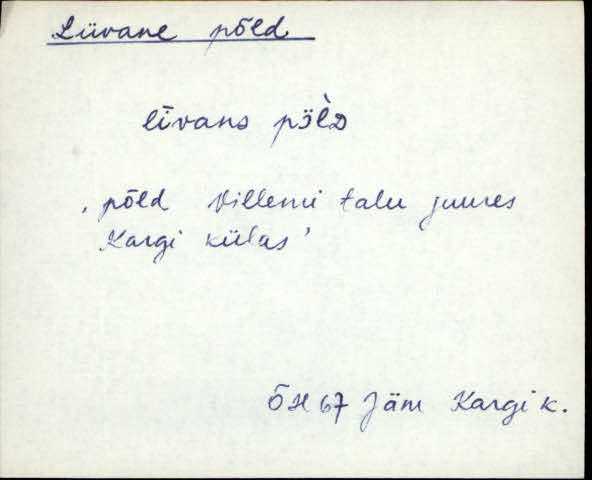 Liivane põld
līvans pöl̀D
, põld Villemi talu juures
Kargi külas ʼ
ÕH 67 Jäm Kargi k.